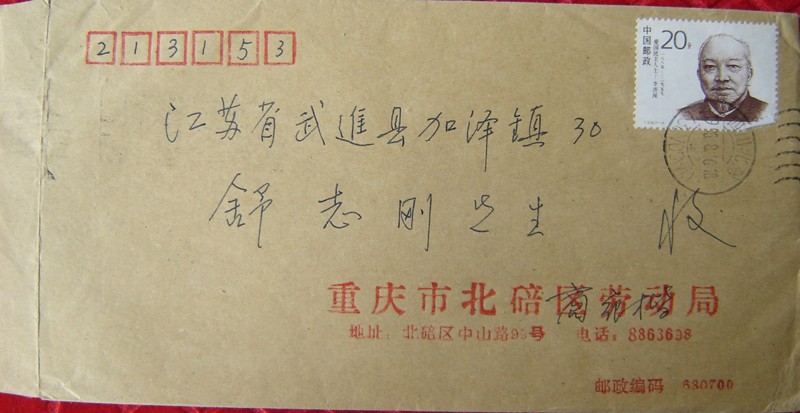 213153
20分
中国邮政
爱国民主人士·李济深
江苏省武進县加泽镇 30
舒志刚先生 收
重庆市北碚区劳动局
地址：北碚区中山路99号 电话：8863698
邮政编码 630700